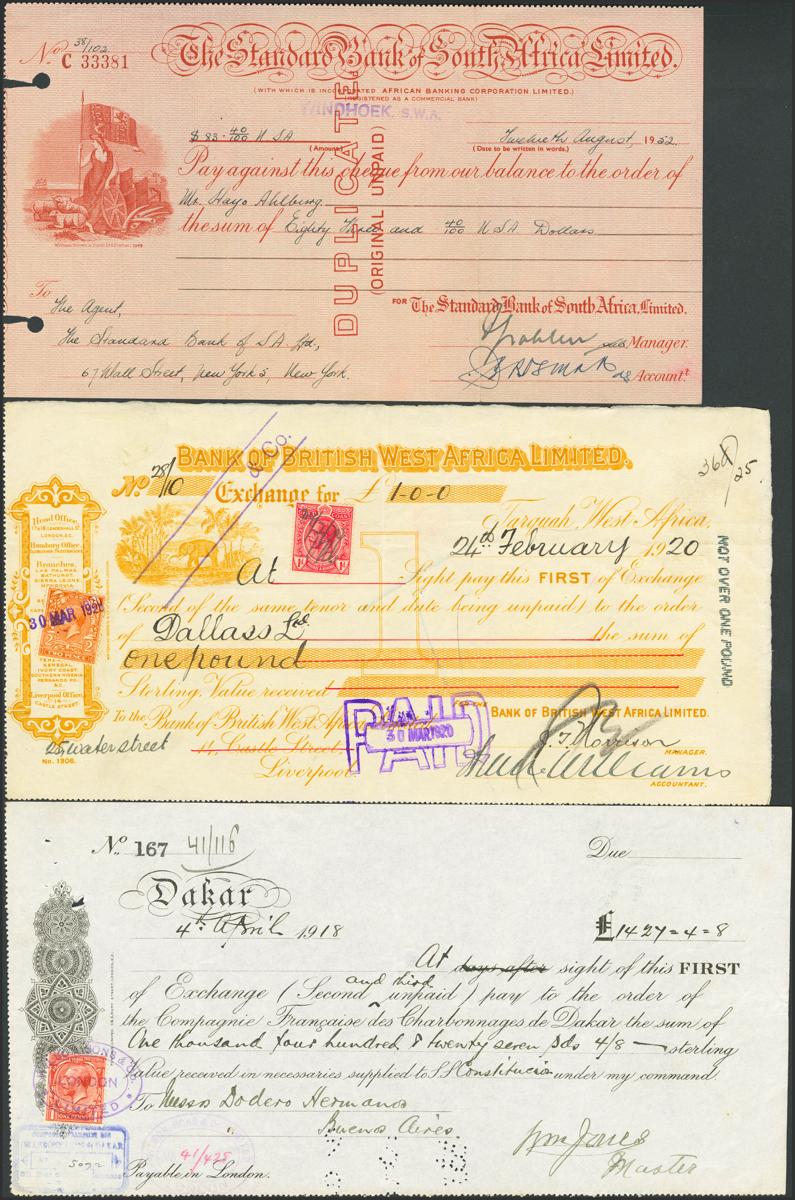 No. 38/102
C 33381
The Standard Bank of South Africa Limited.
(WITH WHICH IS INCORPORATED AFRICAN BANKING CORPORATION LIMITED.)
(REGISTERED AS A COMMERCIAL BANK)
S.W.A.
$ 83 40/100 U S A
(Amount)
Twelveth August, 1952
(Date to be written in words.)
DUPLICATE.
(ORIGINAL UNPAID)
Pay against this cheque from our balance to the order of
Mr. Hayo Ahlburg
the sum of Eighty Three and 40/100 U S A Dollars
To The Agent,
FOR The Standard Bank of South Africa, Limited.
The Standard Bank of S.A. Ltd,
Manager.
67 Wall Street, New York 5, New York.
Accountt.
& Co.
BANK OF BRITISH WEST AFRICA LIMITED.
No. 28/10
368/25.
Exchange for £ 1-0-0
Tarquah, West Africa,
24th February 1920
At Sight pay this FIRST of Exchange
(Second of the same tenor and date being unpaid) to the order
of Dallass Ltd the sum of
one pound
Sterling. Value received
NOT OVER ONE POUND
Head Office,
LONDON. E.C.
Hamburg Office,
Branches,
LAS PALMAS
BATHURST
SIERRA LEONE
MONROVIA
30 MAR 1920
TWO PENCE
SENEGAL
IVORY COAST
SOUTHERN NIGERIA
FERNANDO PO
&c.
Liverpool Office,
14
CASTLE STREET.
To the Bank of British West Africa Limited
FOR THE BANK OF BRITISH WEST AFRICA LIMITED.
PAID
30 MAR 1920
25, water street
14, Castle Street,
Liverpool.
J. F. Morrison
MANAGER.
Williams
ACCOUNTANT.
No. 1306.
No. 167 41/116
Due
Dakar
4th April 1918
£1427=4=8
At days after sight of this FIRST
of Exchange (Second and third unpaid) pay to the order of
the Compagnie Française des Charbonnages de Dakar the sum of
One thousand four hundred & twenty seven pds 4/8 — sterling
Value received in necessaries supplied to S/S Constitucia under my command.
LONDON
LIMITED
ONE PENNY
To Messrs Dodero Hermanos
" Buenos Aires.
Wm Jones
Master
41/425
5092
Payable in London.